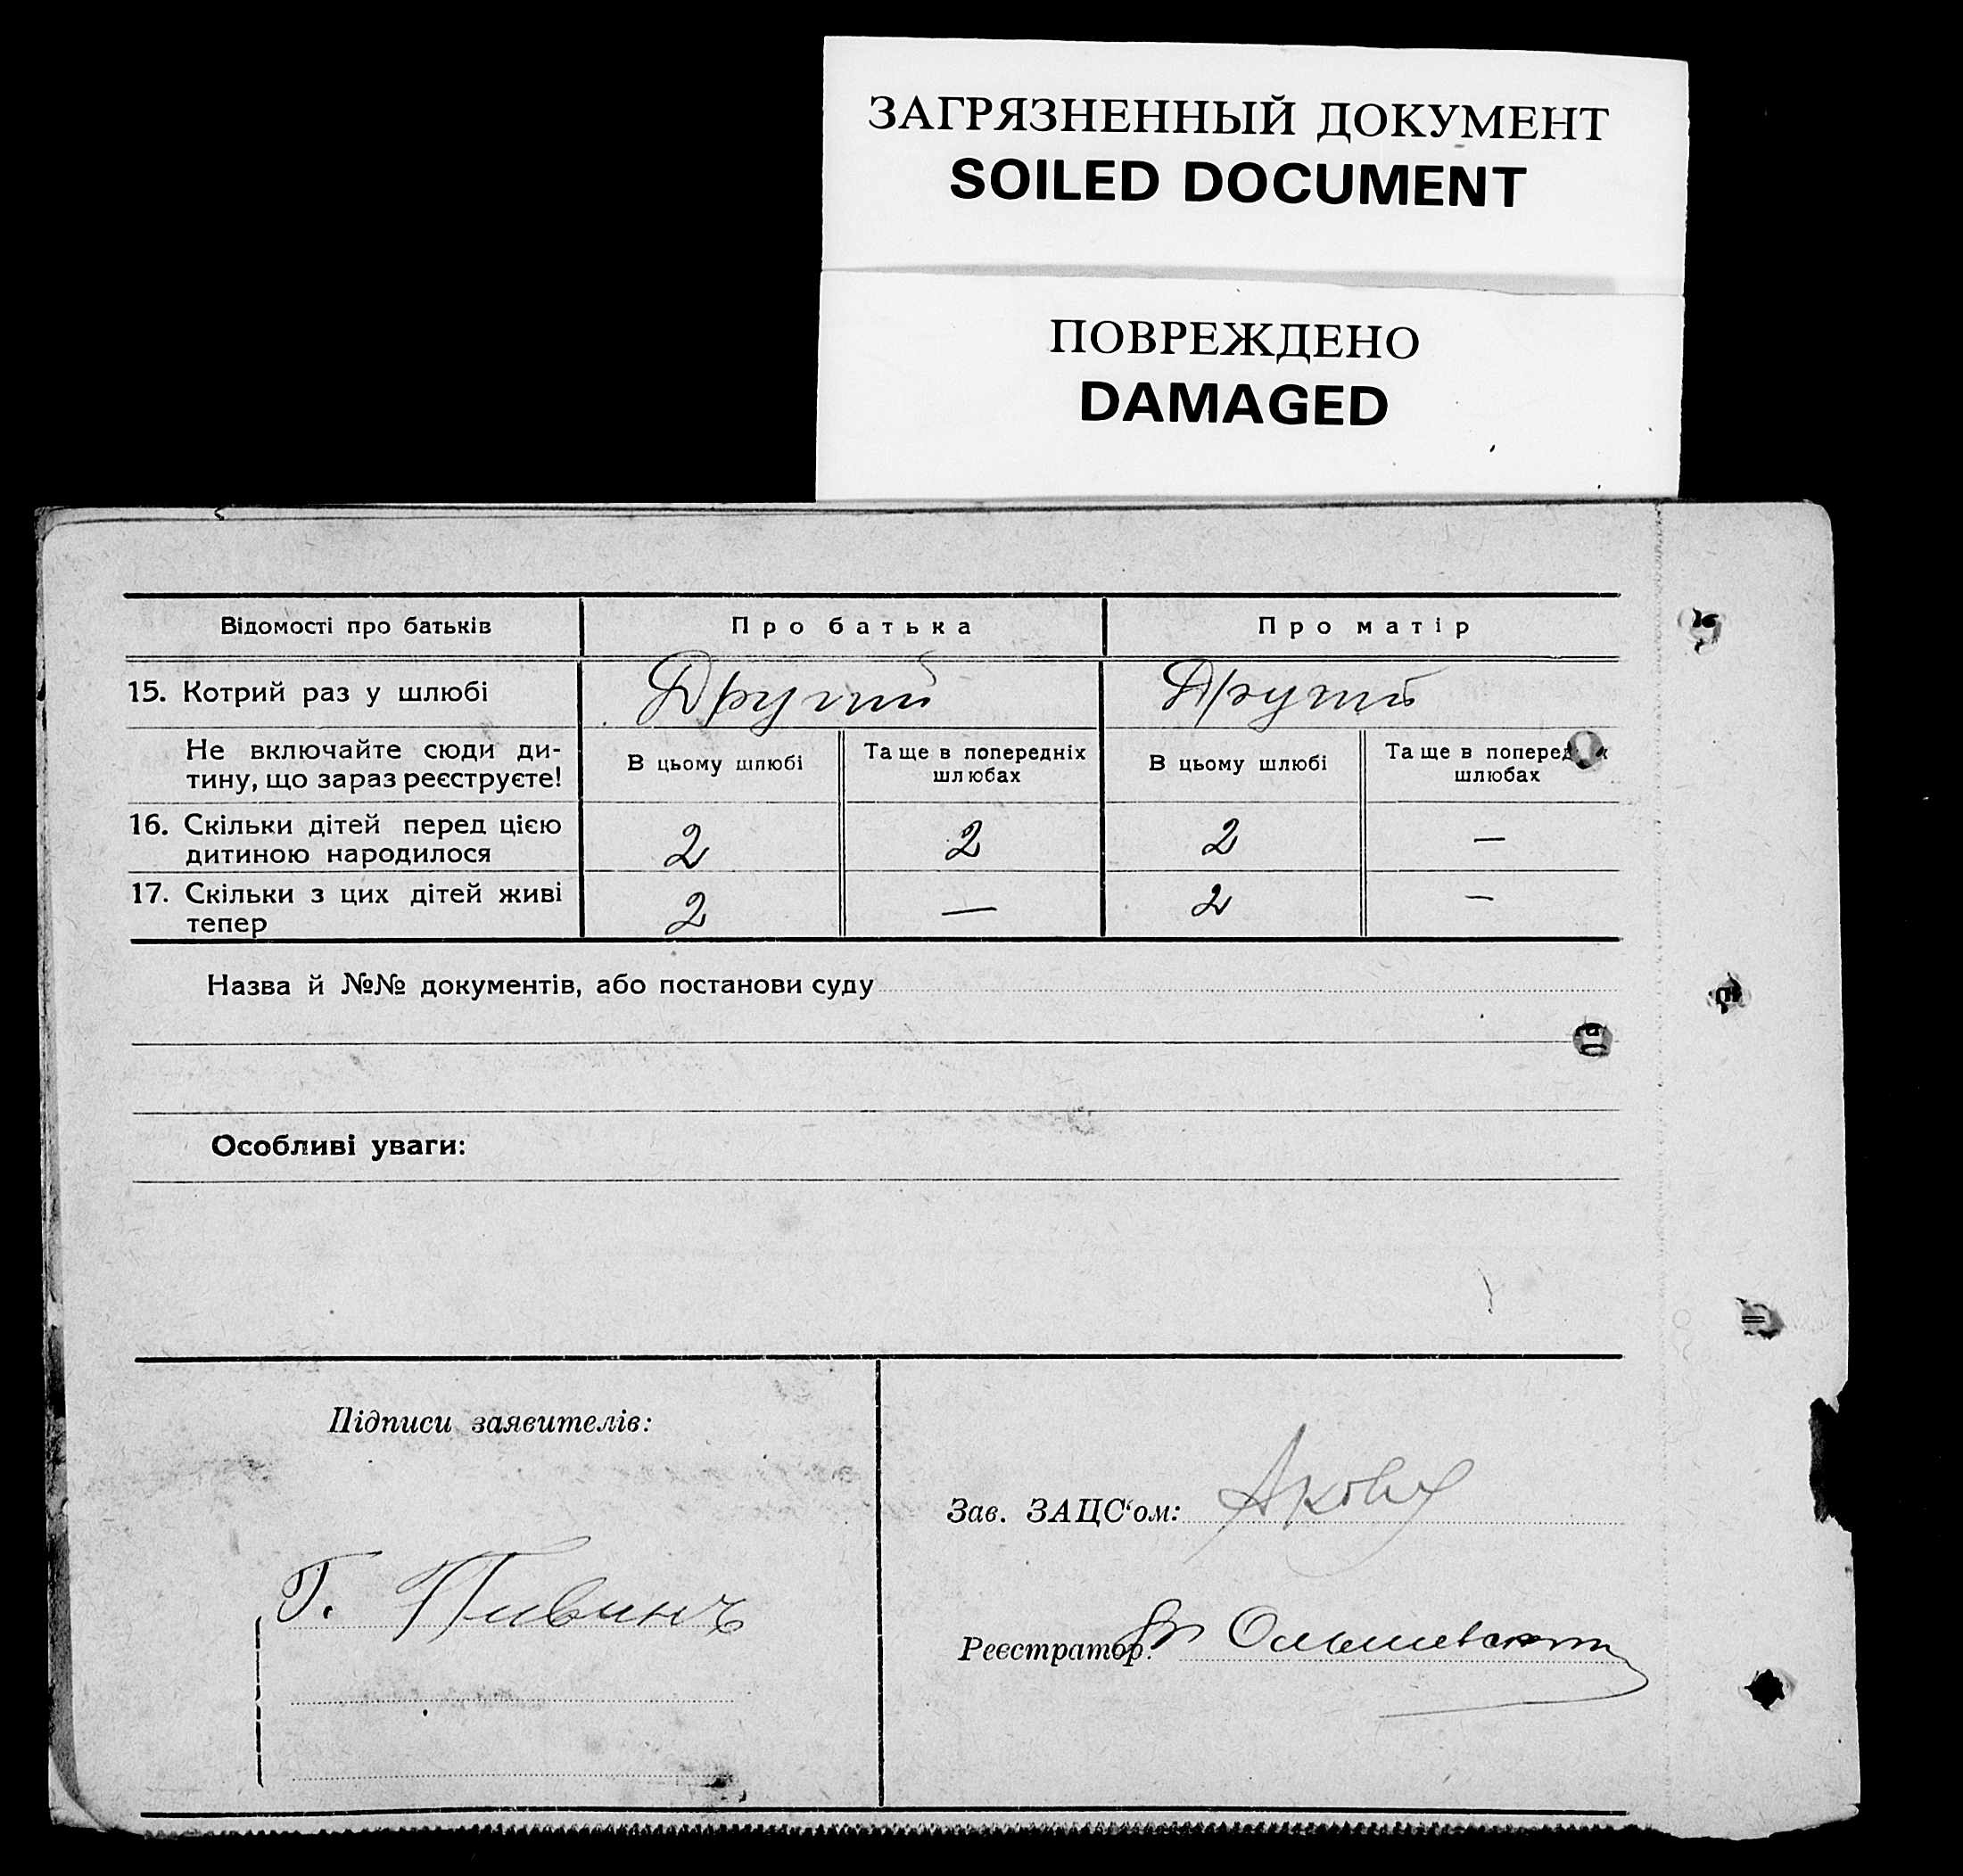 ЗАГРЯЗНЕННЫЙ ДОКУМЕНТ
SOILED DOCUMENT
ПОВРЕЖДЕНО
DAMAGED
Відомості про батьків Про батька Про матір
15. Котрий раз у шлюбі Другий Другий
Не включайте сюди ди-
тину, що зараз реєструєте!
В цьому шлюбі
Та ще в попередніх
шлюбах
В цьому шлюбі
Та ще в поперед
шлюбах
16. Скільки дітей перед цією
дитиною народилося
2 2 2 —
17. Скільки з цих дітей живі
тепер
2 — 2 —
Назва й №№ документів, або постанови суду
Особливі уваги:
Підписи заявителів:
Г. Пивинъ
Зав. ЗАЦС‘ом:
Реєстратор: Ольшевский